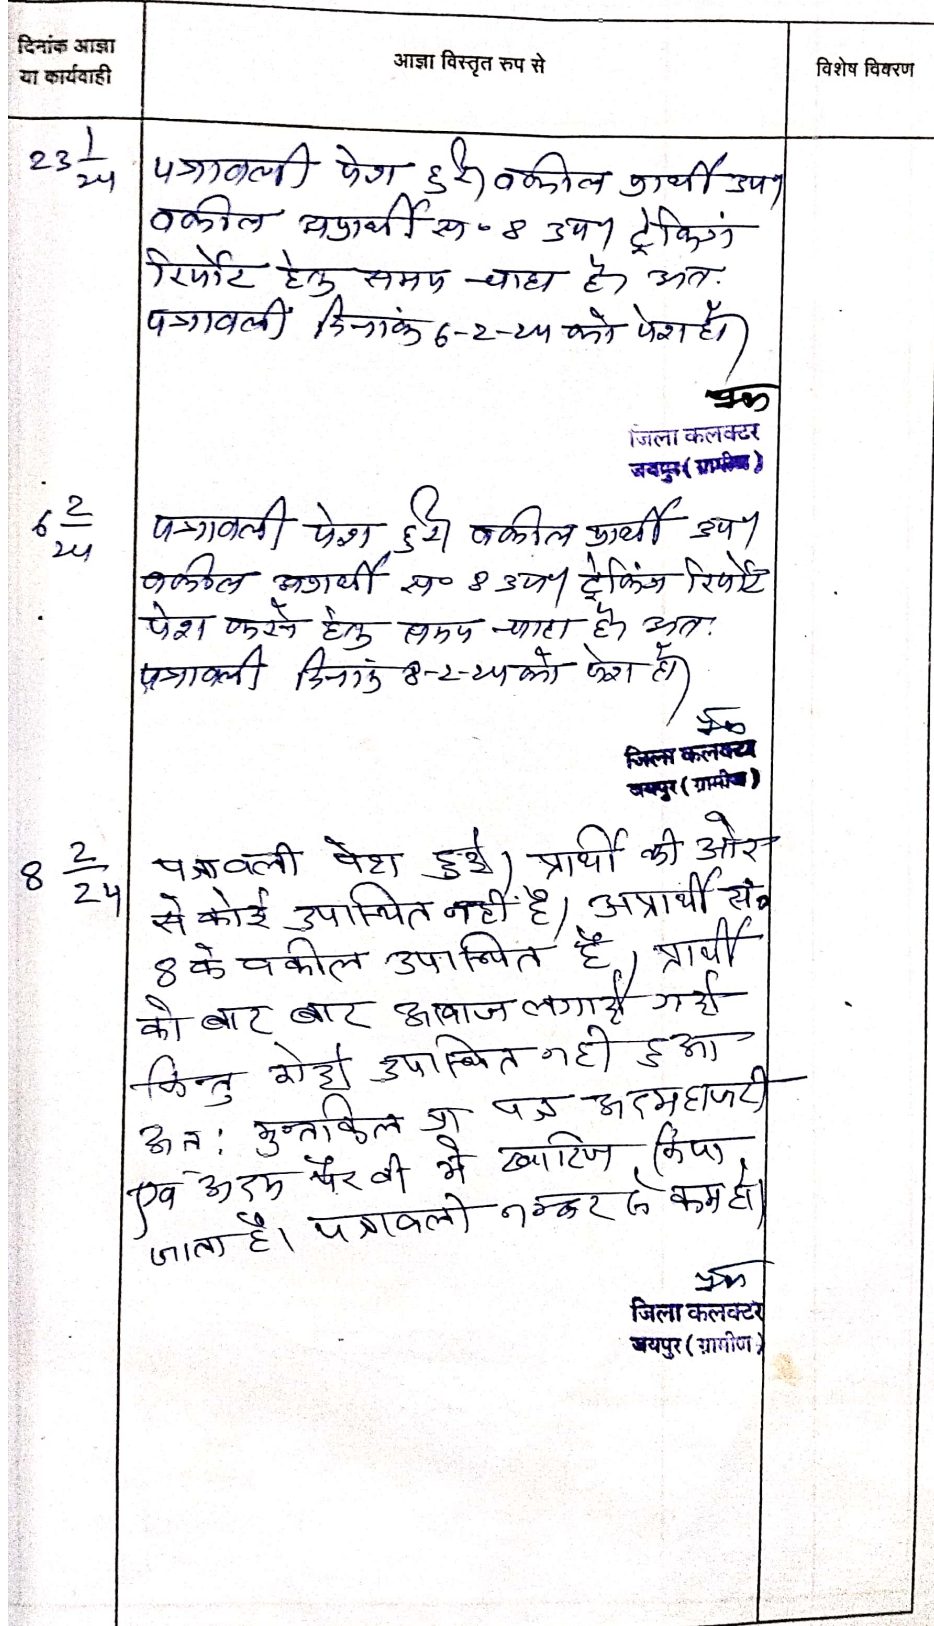 दिनांक आज्ञा
या कार्यवाही
आज्ञा विस्तृत रुप से
विशेष विवरण
23 1/24
पत्रावली पेश हुई। वकील प्रार्थी उप।
वकील अप्रार्थी स॰ 8 उप। ट्रेकिंग
रिर्पोट हेतु समय चाहा है। अत:
पत्रावली दिनांक 6-2-24 को पेश हो।
जिला कलक्टर
जयपुर (ग्रामीण)
6 2/24
पत्रावली पेश हुई। वकील प्रार्थी उप।
वकील अप्रार्थी स॰ 8 उप। ट्रेकिंग रिर्पोट
पेश करने हेतु समय चाहा है। अत:
पत्रावली दिनांक 8-2-24 को पेश हो।
जिला कलक्टर
जयपुर (ग्रामीण)
8 2/24
पत्रावली पेश हुई। प्रार्थी की ओर
से कोई उपस्थित नही है। अप्रार्थी सं॰
8 के वकील उपस्थित है। प्रार्थी
को बार बार आवाज लगाई गई
किन्तु कोई उपस्थित नही हुआ
अत: मुन्तकिल प्रा पत्र अदमहाजरी
एवं अदम पैरवी मे खारिज किया
जाता है। पत्रावली नम्बर से कम हो।
जिला कलक्टर
जयपुर (ग्रामीण)